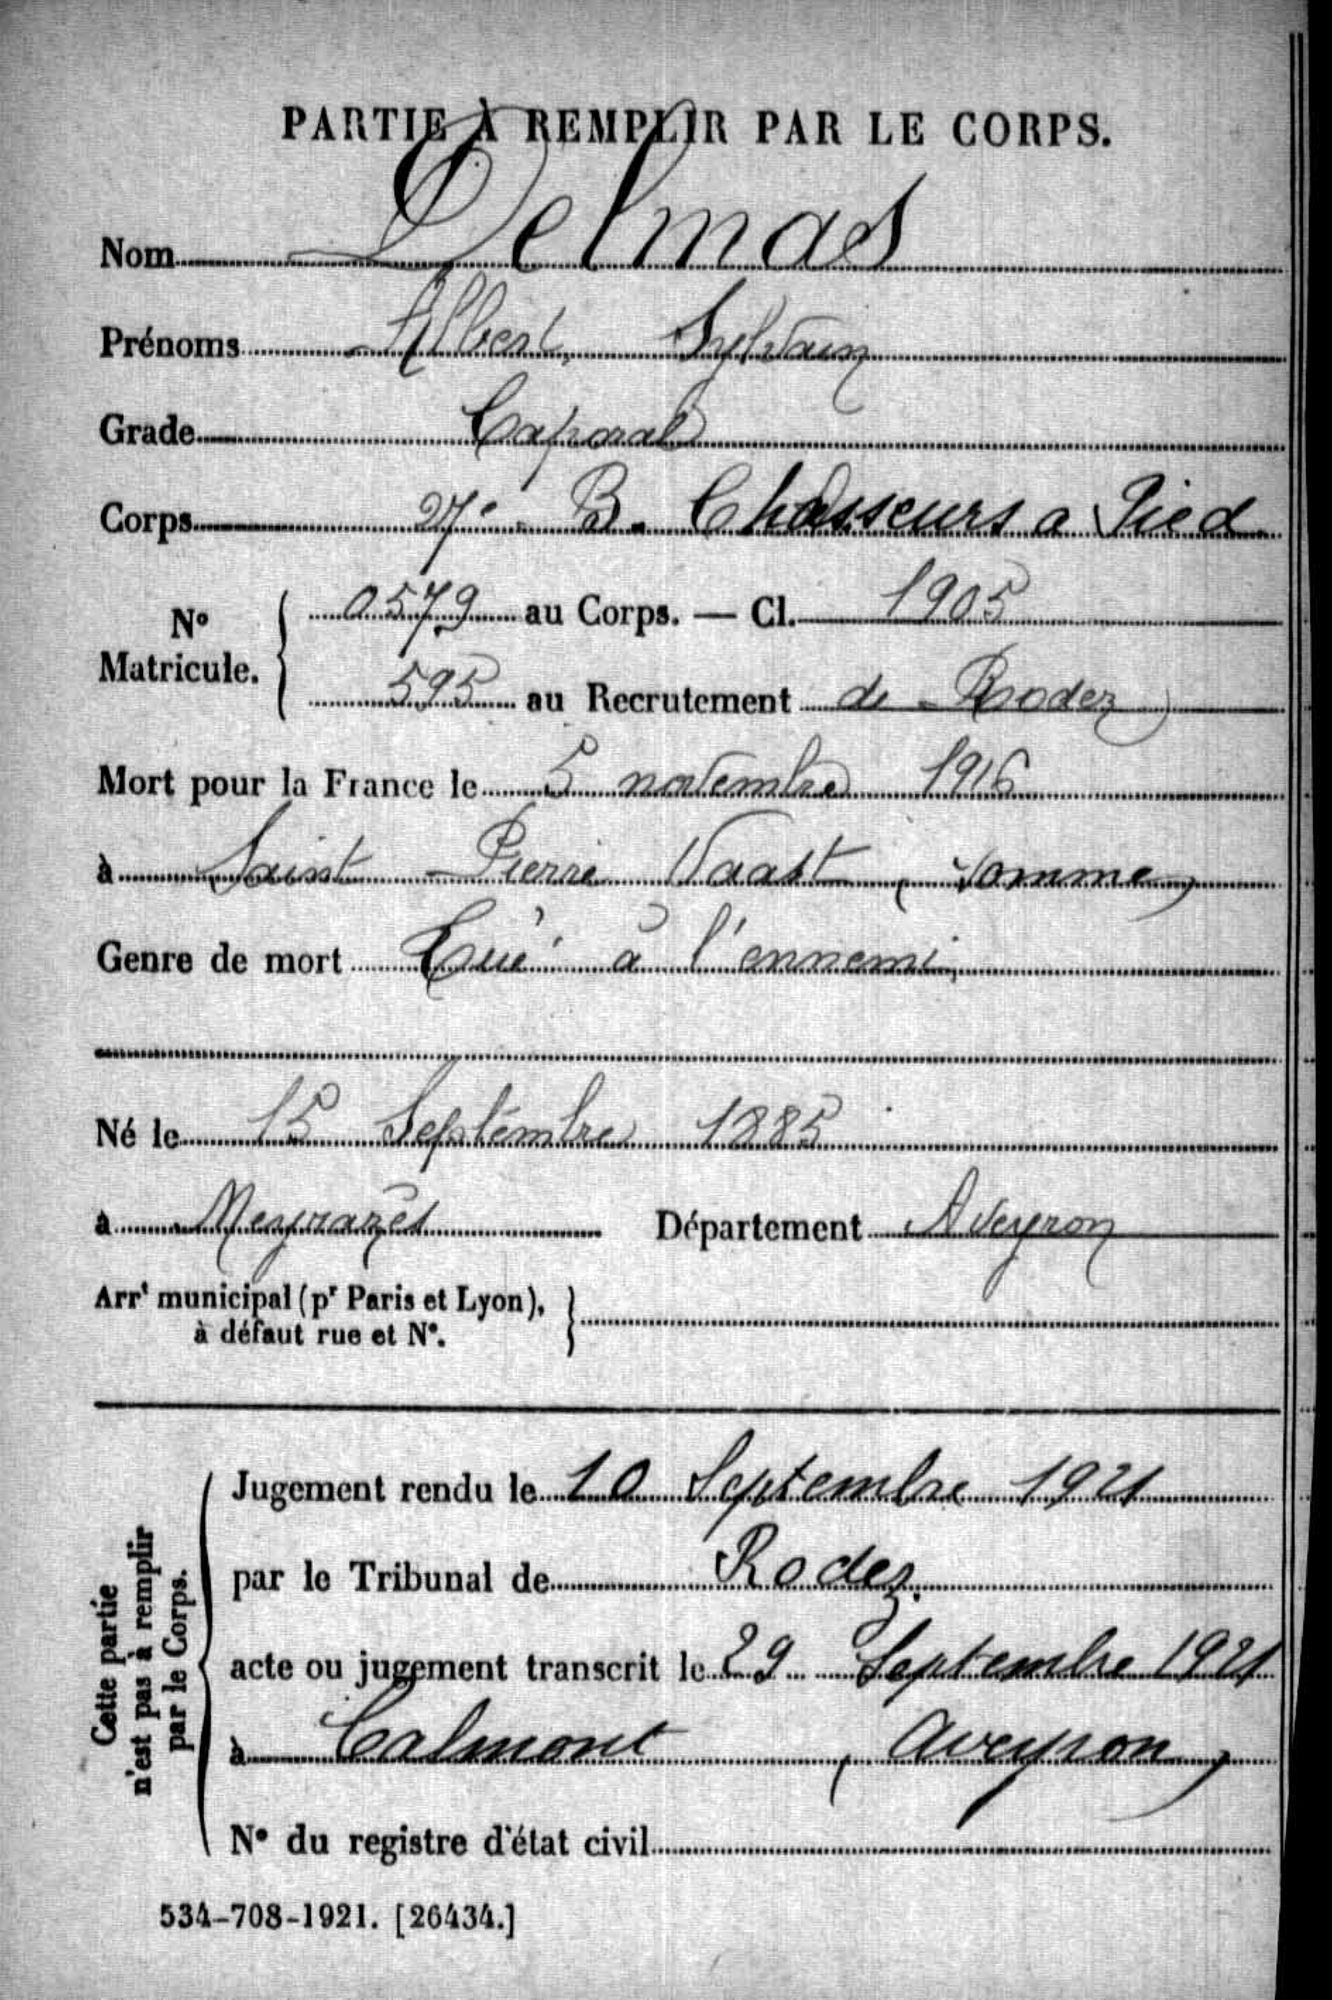 PARTIE À REMPLIR PAR LE CORPS.
Nom Delmas
Prénoms Albert, Sylvain
Grade Caporal
Corps 27e. B. Chasseurs a Pied
No Matricule. { 0579 au Corps. — Cl. 1905
595 au Recrutement de Rodez
Mort pour la France le 5 novembre 1916
à Saint Pierre Vaast (Somme)
Genre de mort Tué à l'ennemi,
Né le 15 Septembre 1885
à Meyrazès Département Aveyron
Arrt municipal (pr Paris et Lyon), }
à défaut rue et No.
Cette partie
n'est pas à remplir
par le Corps.
Jugement rendu le 10 Septembre 1921
par le Tribunal de Rodez.
acte ou jugement transcrit le 29 Septembre 1921
à Calmont (Aveyron)
No du registre d'état civil
534-708-1921. [26434.]